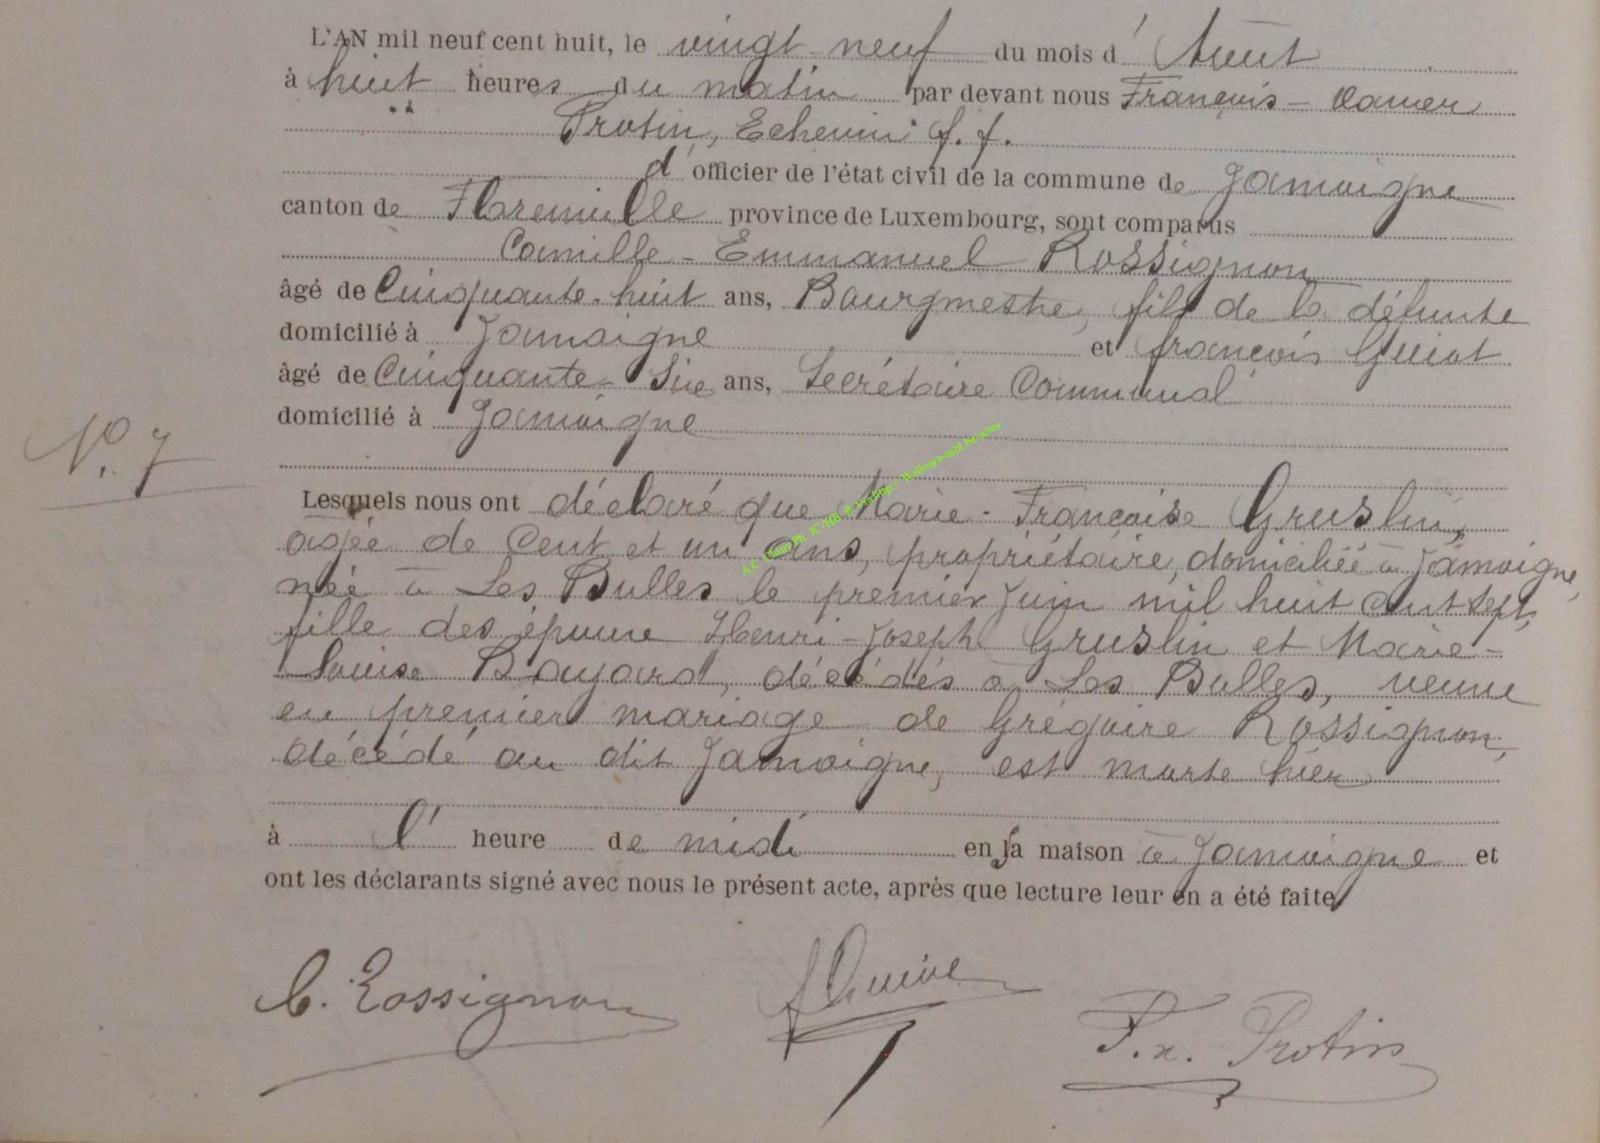 L'AN mil neuf cent huit, le vingt neuf du mois d' Août
à huit heures du matin par devant nous François - Xavier
Protin, Echevin f. f.
d' officier de l'état civil de la commune de Jamoigne
canton de Florenville province de Luxembourg, sont comparus
Camille - Emmanuel Rossignon
âgé de Cinquante-huit ans, Bourgmestre, fils de la défunte
domicilié à Jamoigne et françois Guiot
âgé de Cinquante-Six ans, Secrétaire Communal
domicilié à Jamoigne
N°. 7
Lesquels nous ont déclaré que Marie - Françoise Gruslin,
agée de Cent et un ans, propriétaire, domiciliée à Jamoigne,
née à Les Bulles le premier Juin mil huit cent sept,
fille des époux Henri-Joseph Gruslin et Marie-
Louise Boujard, décédés à Les Bulles, veuve
en premier mariage de Grégoire Rossignon,
décédé au dit Jamoigne, est morte hier
à l' heure de midi en sa maison à Jamoigne et
ont les déclarants signé avec nous le présent acte, après que lecture leur en a été faite
C. Rossignon
F. x. Protin